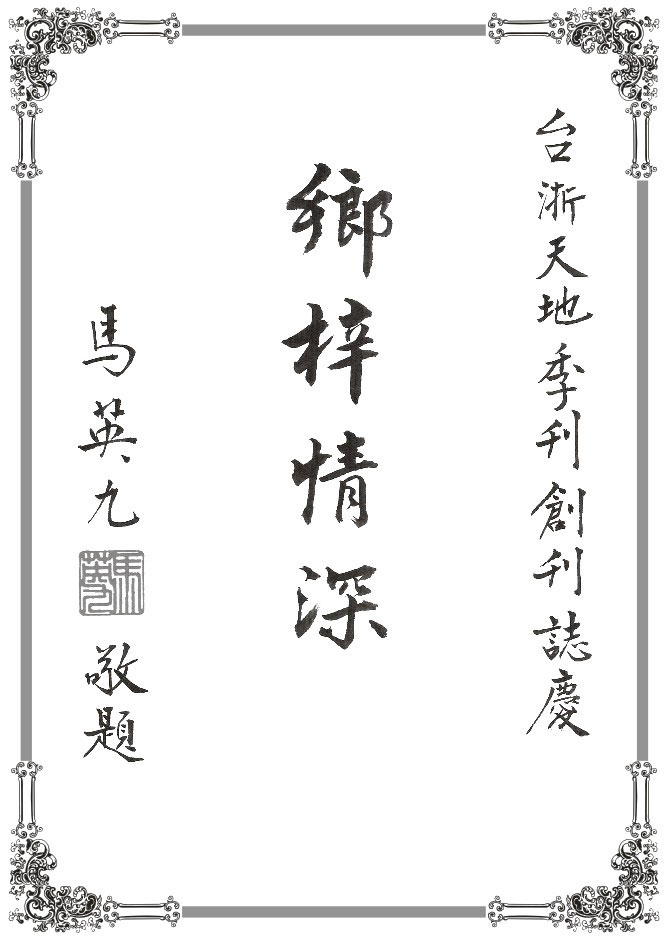 台浙天地季刊創刊誌慶
鄉梓情深
馬英九
馬英九
敬題